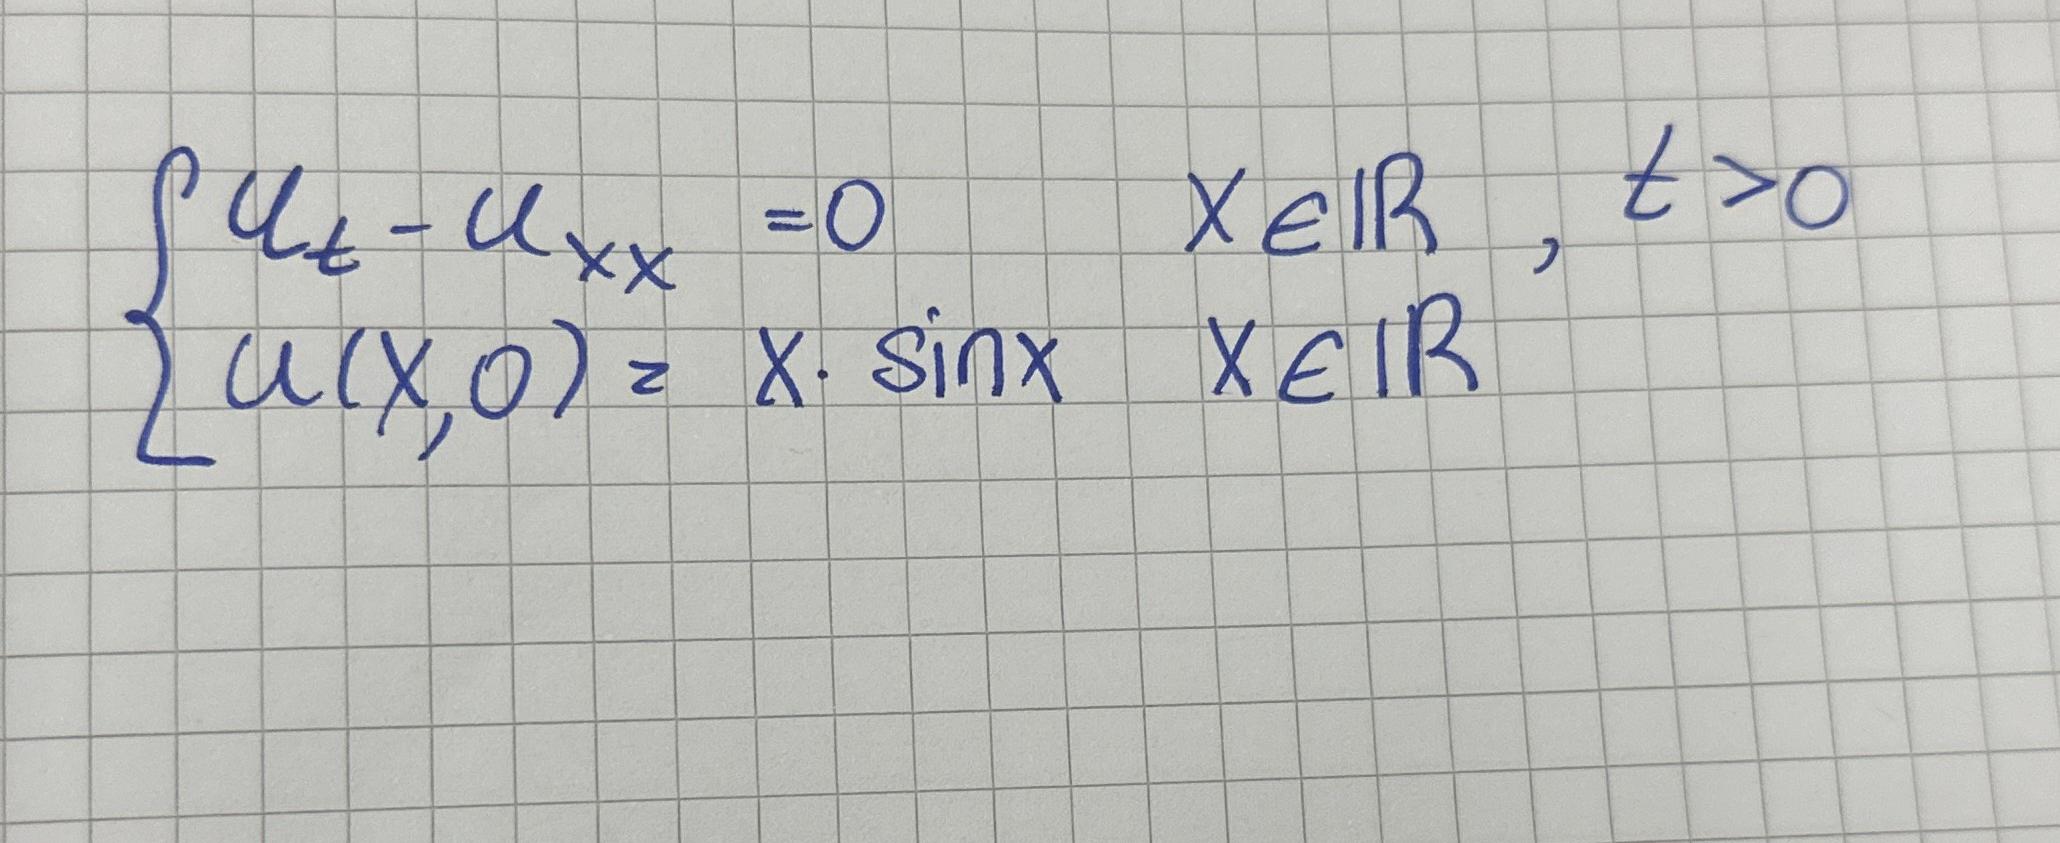 { u_t - u_xx = 0 x ∈ ℝ , t > 0
u(x,0) = x · sin x x ∈ ℝ